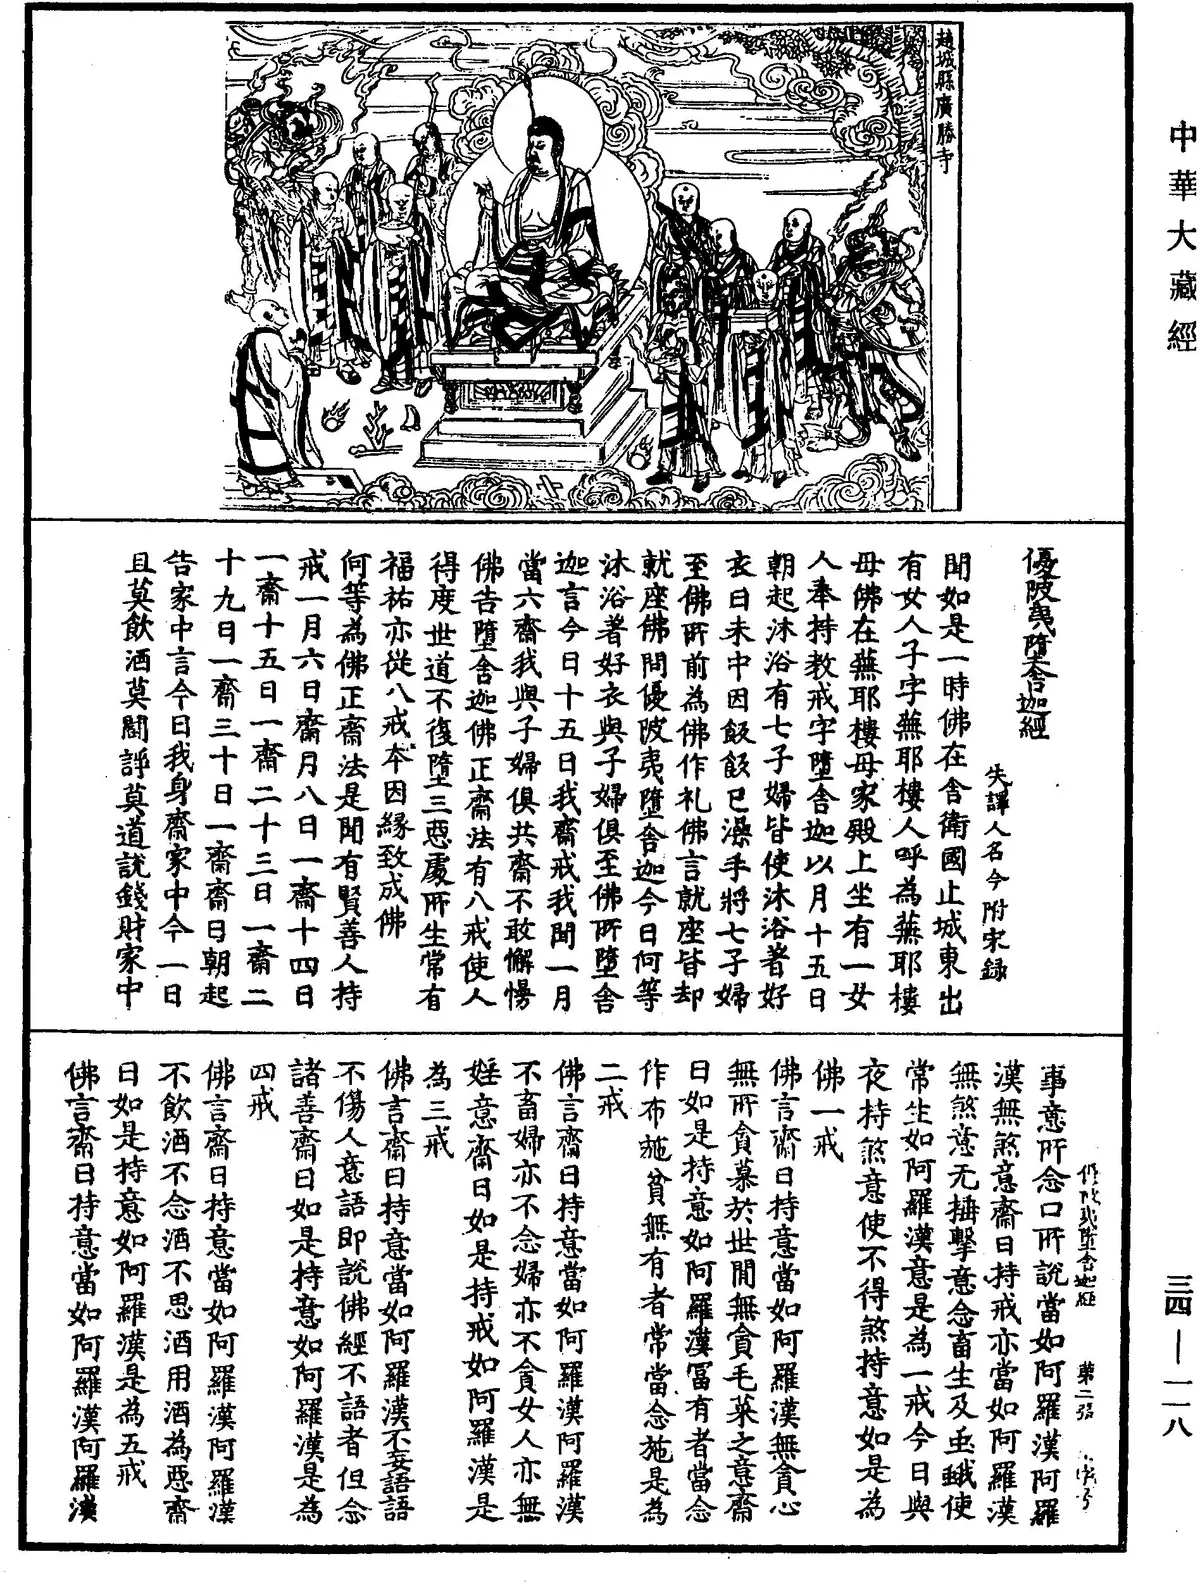 中華大藏經
趙城縣廣勝寺
優陂夷墮舍迦經
失譯人名今附宋錄
聞如是一時佛在舍衛國止城東出
有女人子字蕪耶樓人呼為蕪耶樓
母佛在蕪耶樓母家殿上坐有一女
人奉持教戒字墮舍迦以月十五日
朝起沐浴有七子婦皆使沐浴著好
衣日未中因飯飯已澡手將七子婦
至佛所前為佛作礼佛言就座皆却
就座佛問優陂夷墮舍迦今日何等
沐浴著好衣與子婦俱至佛所墮舍
迦言今日十五日我齋戒我聞一月
當六齋我與子婦俱共齋不敢懈慢
佛告墮舍迦佛正齋法有八戒使人
得度世道不復墮三惡處所生常有
福祐亦從八戒本因緣致成佛
何等為佛正齋法是聞有賢善人持
戒一月六日齋月八日一齋十四日
一齋十五日一齋二十三日一齋二
十九日一齋三十日一齋齋日朝起
告家中言今日我身齋家中今一日
且莫飲酒莫鬪諍莫道說錢財家中
墮舍迦經 第二張
事意所念口所說當如阿羅漢阿羅
漢無煞意齋日持戒亦當如阿羅漢
無煞意无捶擊意念畜生及虫蛾使
常生如阿羅漢意是為一戒今日與
夜持煞意使不得煞持意如是為
佛一戒
佛言齋日持意當如阿羅漢無貪心
無所貪慕於世間無貪毛菜之意齋
日如是持意如阿羅漢冨有者當念
作布施貧無有者常當念施是為
二戒
佛言齋日持意當如阿羅漢阿羅漢
不畜婦亦不念婦亦不貪女人亦無
婬意齋日如是持戒如阿羅漢是
為三戒
佛言齋日持意當如阿羅漢不妄語語
不傷人意語即說佛經不語者但念
諸善齋日如是持意如阿羅漢是為
四戒
佛言齋日持意當如阿羅漢阿羅漢
不飲酒不念酒不思酒用酒為惡齋
日如是持意如阿羅漢是為五戒
佛言齋日持意當如阿羅漢阿羅漢
三四—一一八